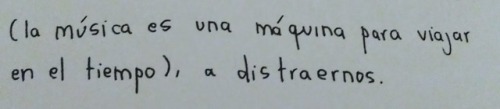 (la música es una máquina para viajar
en el tiempo), a distraernos.